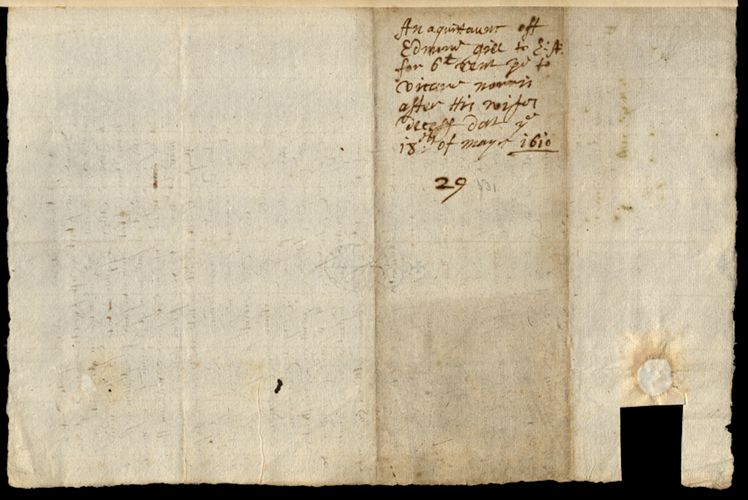 An aquittaunc off
Edmund gill to E: A:
for 6ˡ rent pd to
Vicare norris
after His wifes
decess dat yᵉ
18ᵗʰ of maye 1610
29